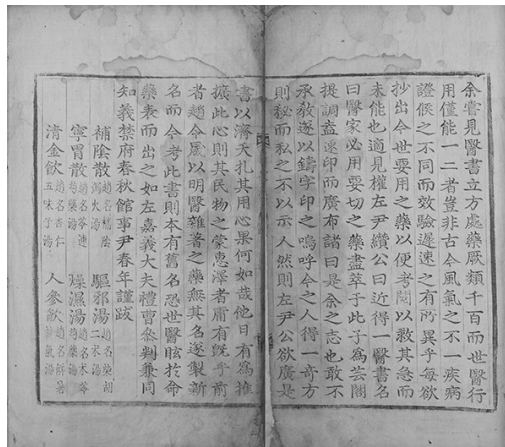 余嘗見醫書立方處藥厥類千百而世醫行
用僅能一二者豈非古今風氣之不一疾病
證候之不同而效驗遲速之有所異乎每欲
抄出今世要用之藥以便考閱以救其急而
未能也適見權左尹纘公曰近得一醫書名
曰醫家必用要切之藥盡萃于此子爲芸閣
提調盍速印而廣布諸曰是余之志也敢不
承敎遂以鑄字印之嗚呼今之人得一奇方
則秘而私之不以示人然則左尹公欲廣是
書以濟夭扎其用心果何如哉他日有爲推
擴此心則其民物之蒙惠澤者庸有旣乎前
者趙今風以明醫雜著之藥無其名遂製新
名而今考此書則本有舊名恐世醫眩於命
藥表而出之如左嘉義大夫禮曹參判兼同
知義禁府春秋館事尹春年謹跋
補陰散 趙名補陰瀉火湯 驅邪湯 趙名柴胡二朮湯
寧胃散 趙名芩連芍藥湯 燥濕湯 趙名朮苓芍藥湯
清金飮 趙名杏仁五味子湯 人參飮 趙名解暑益氣湯